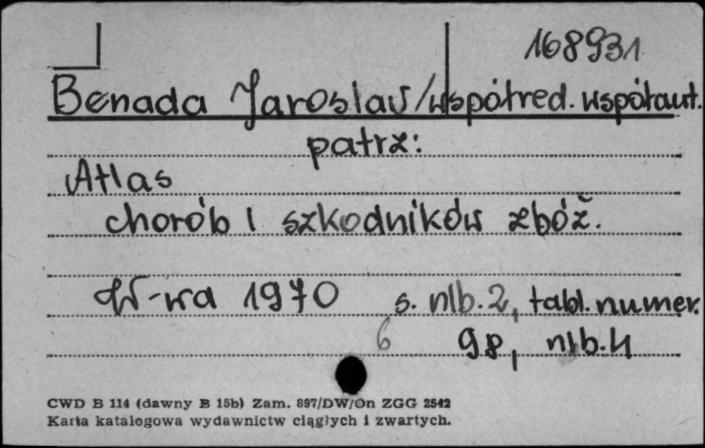 168931
Benada Jaroslav/współred. współaut.
patrz:
Atlas
chorób i szkodników zbóż.
W-wa 1970 s. nlb. 2, tabl. numer.
6 98, nlb. 4
CWD B 114 (dawny B 15b) Zam. 897/DW/On ZGG 2542
Karta katalogowa wydawnictw ciągłych i zwartych.